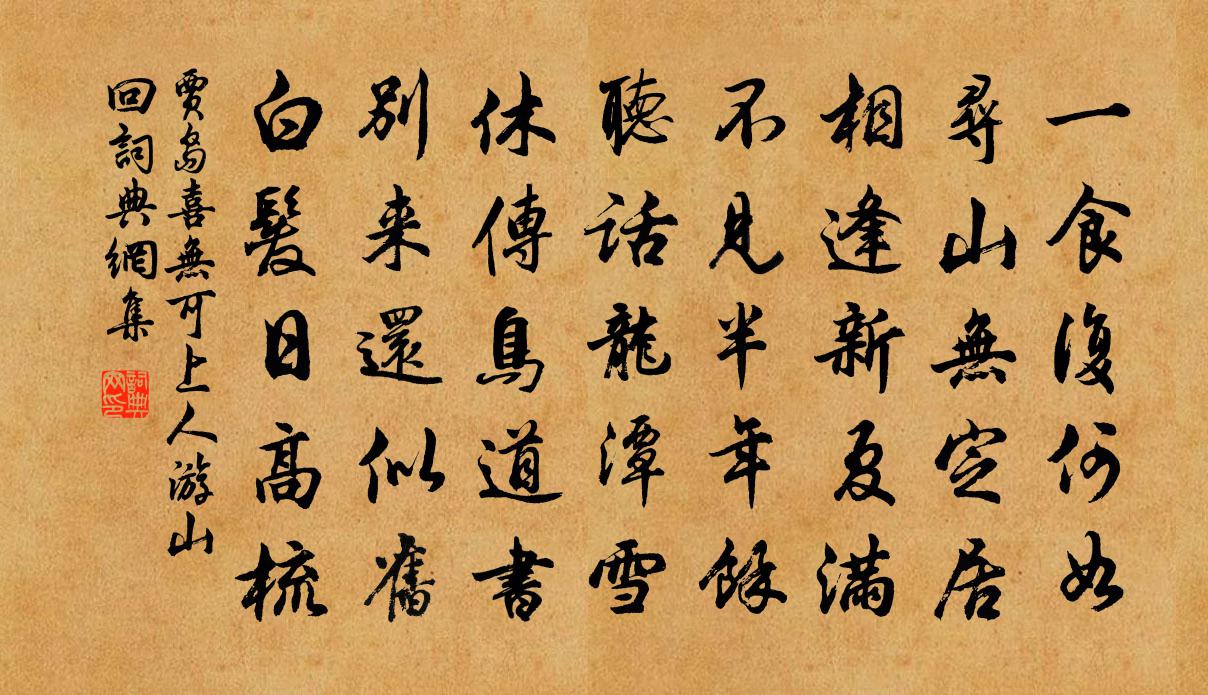 一食復何如
尋山無定居
相逢新夏滿
不見半年餘
聽話龍潭雪
休傳鳥道書
別来還似舊
白髮日高梳
賈島喜無可上人游山
回詞典網集
詞典
网印